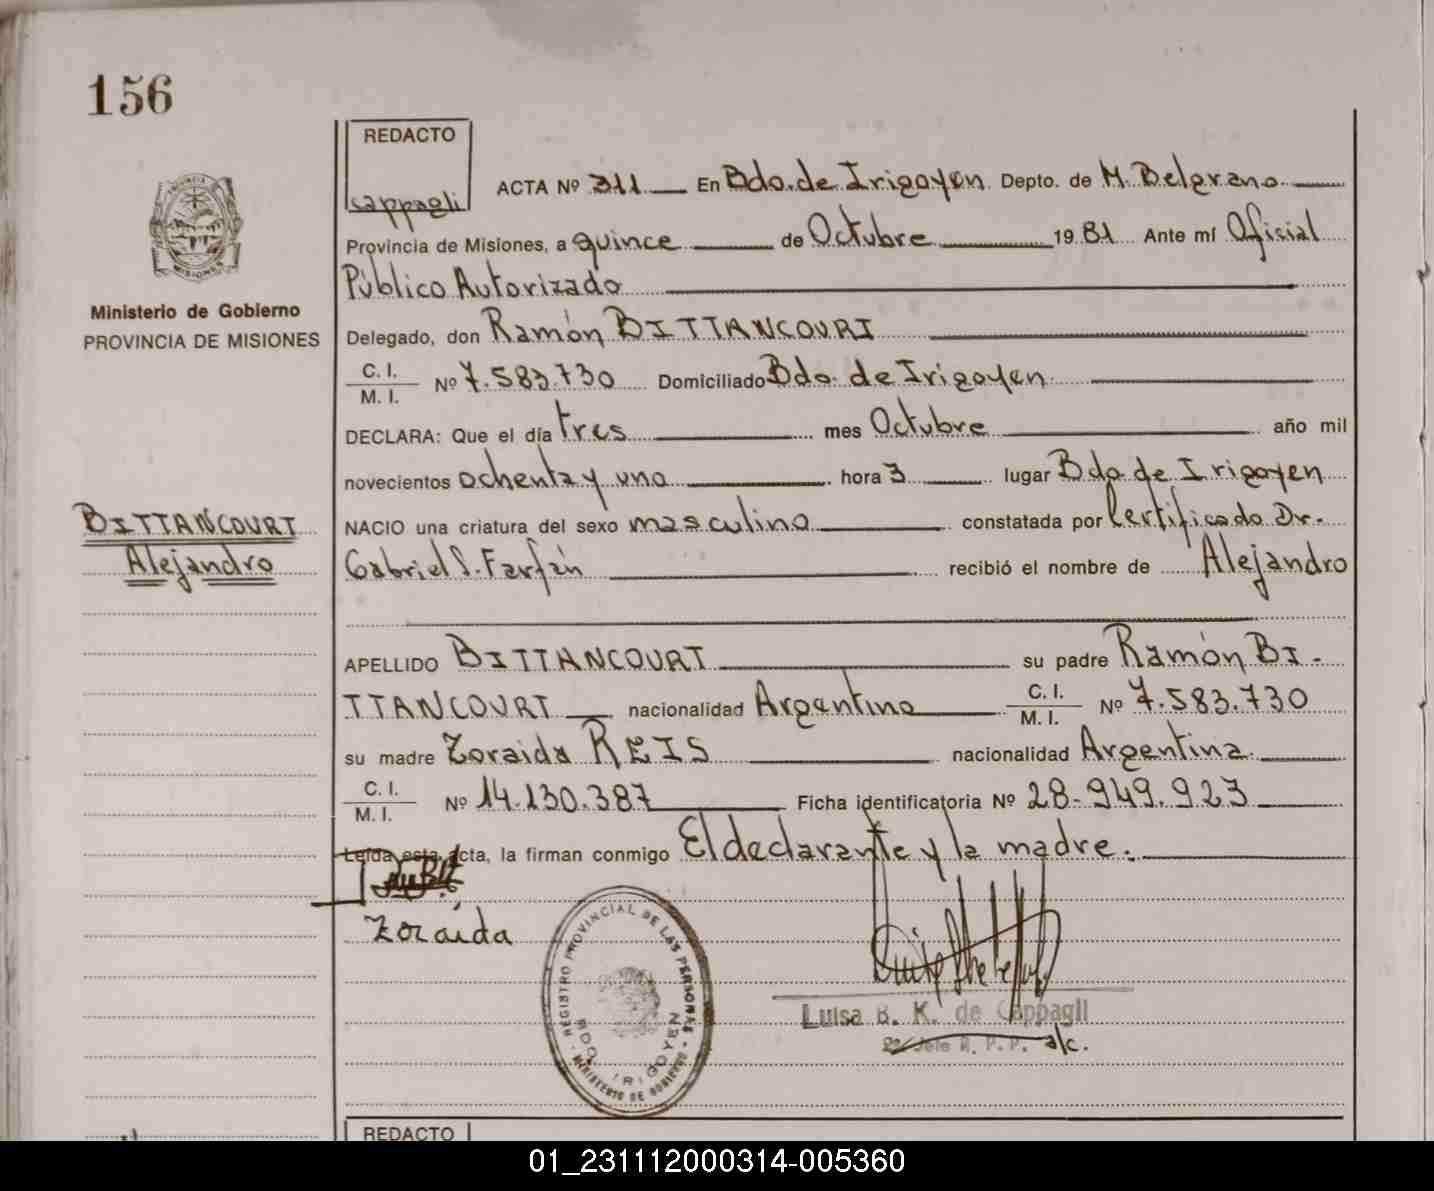 156
REDACTO
cappagli
PROVINCIA DE
MISIONES
Ministerio de Gobierno
PROVINCIA DE MISIONES
BITTANCOURT
Alejandro
ACTA Nº 311 En Bdo. de Irigoyen Depto. de M. Belgrano
Provincia de Misiones, a quince de Octubre 1981 Ante mí Oficial
Público Autorizado
Delegado, don Ramón BITTANCOURT
C. I.
M. I. Nº 7.583.730 Domiciliado Bdo. de Irigoyen
DECLARA: Que el día tres mes Octubre año mil
novecientos ochenta y uno hora 3 lugar Bdo de Irigoyen
NACIO una criatura del sexo masculino constatada por Certificado Dr.
Gabriel S. Farfán recibió el nombre de Alejandro
APELLIDO BITTANCOURT su padre Ramón BI-
TTANCOURT nacionalidad Argentino C. I. M. I. Nº 7.583.730
su madre Zoraida REIS nacionalidad Argentina
C. I.
M. I. Nº 14.130.387 Ficha identificatoria Nº 28.949.923
Leída esta acta, la firman conmigo El declarante y la madre.
Zoraida
REGISTRO PROVINCIAL DE LAS PERSONAS
BDO. IRIGOYEN
MINISTERIO DE GOBIERNO
Luisa B. K. de Cappagli
Jefe R. P. P. a/c.
REDACTO
01_231112000314-005360